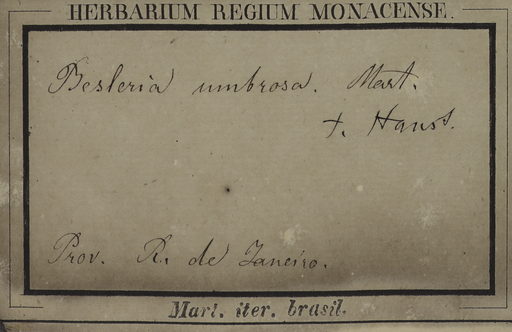 HERBARIUM REGIUM MONACENSE.
Besleria umbrosa. Mart.
t. Hanst.
Prov. R. de Janeiro.
Mart. iter. brasil.